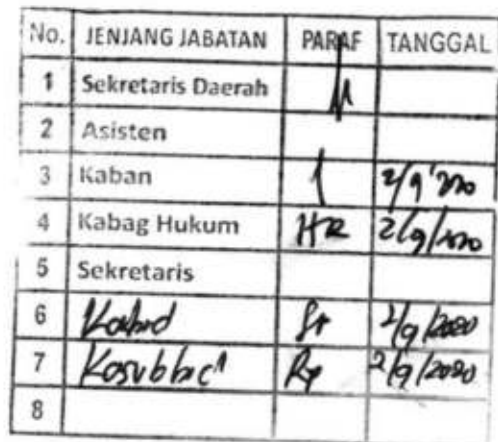 No. JENJANG JABATAN PARAF TANGGAL
1 Sekretaris Daerah
2 Asisten
3 Kaban 2/9'2020
4 Kabag Hukum HR 2/9/2020
5 Sekretaris
6 Kabid 2/9/2020
7 Kasubbid 2/9/2020
8